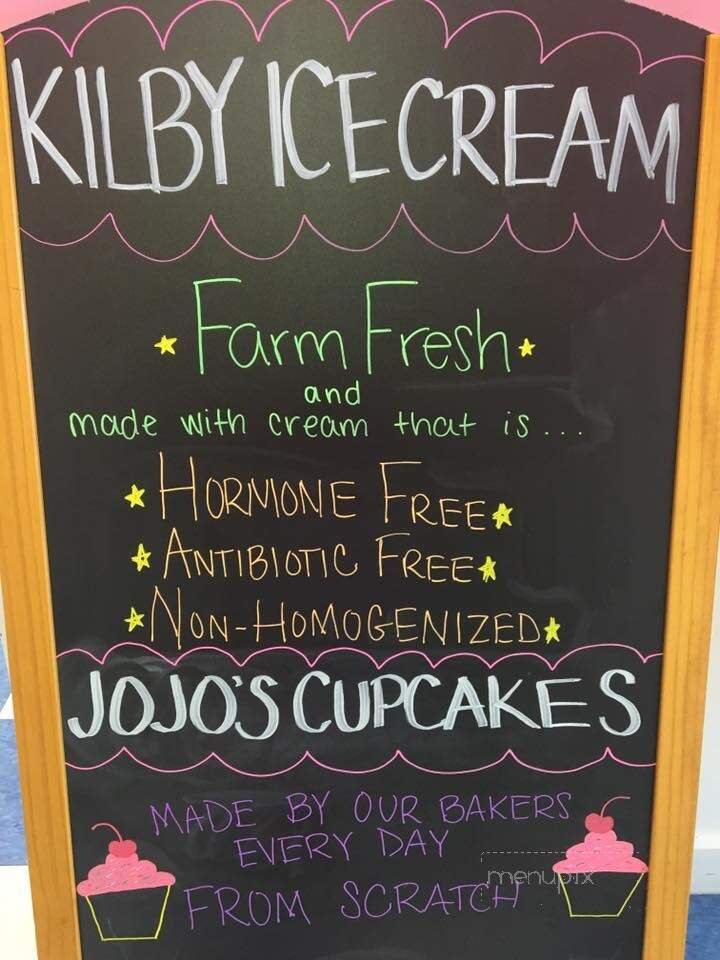 KILBY ICE CREAM
Farm Fresh
and
made with cream that is...
HORMONE FREE
ANTIBIOTIC FREE
NON-HOMOGENIZED
JOJO'S CUPCAKES
MADE BY OUR BAKERS
EVERY DAY
FROM SCRATCH
menupix